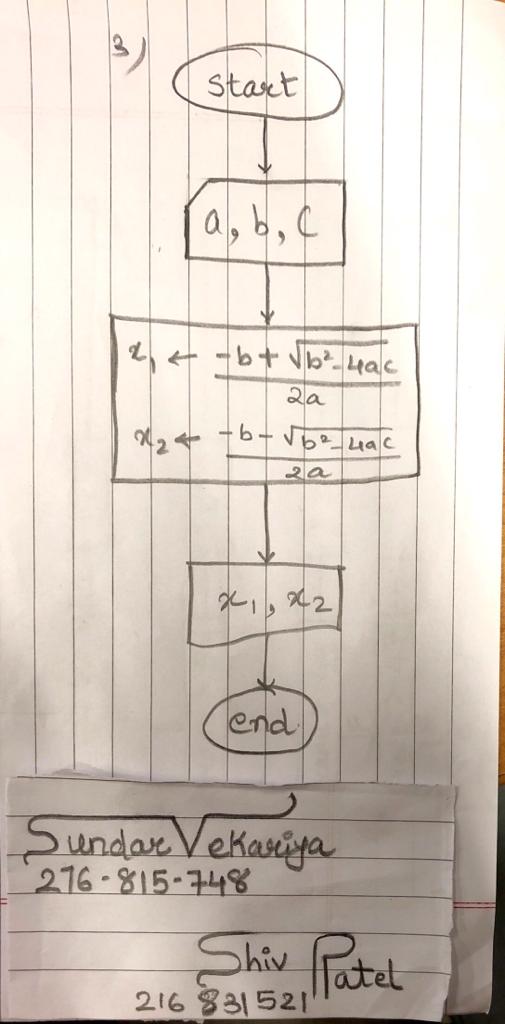 3)
start
a, b, C
x₁ ← -b + √b²-4ac
2a
x₂ ← -b - √b²-4ac
2a
x₁, x₂
end
Sundar Vekariya
276-815-748
Shiv Patel
216 831521